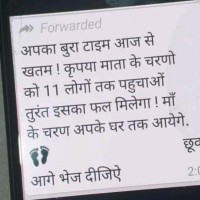 Forwarded
अपका बुरा टाइम आज से
खतम ! कृपया माता के चरणो
को 11 लोगों तक पहुचाओं
तुरंत इसका फल मिलेगा ! माँ
के चरण अपके घर तक आयेगे.
👣
छूव
आगे भेज दीजिऐ
2:0